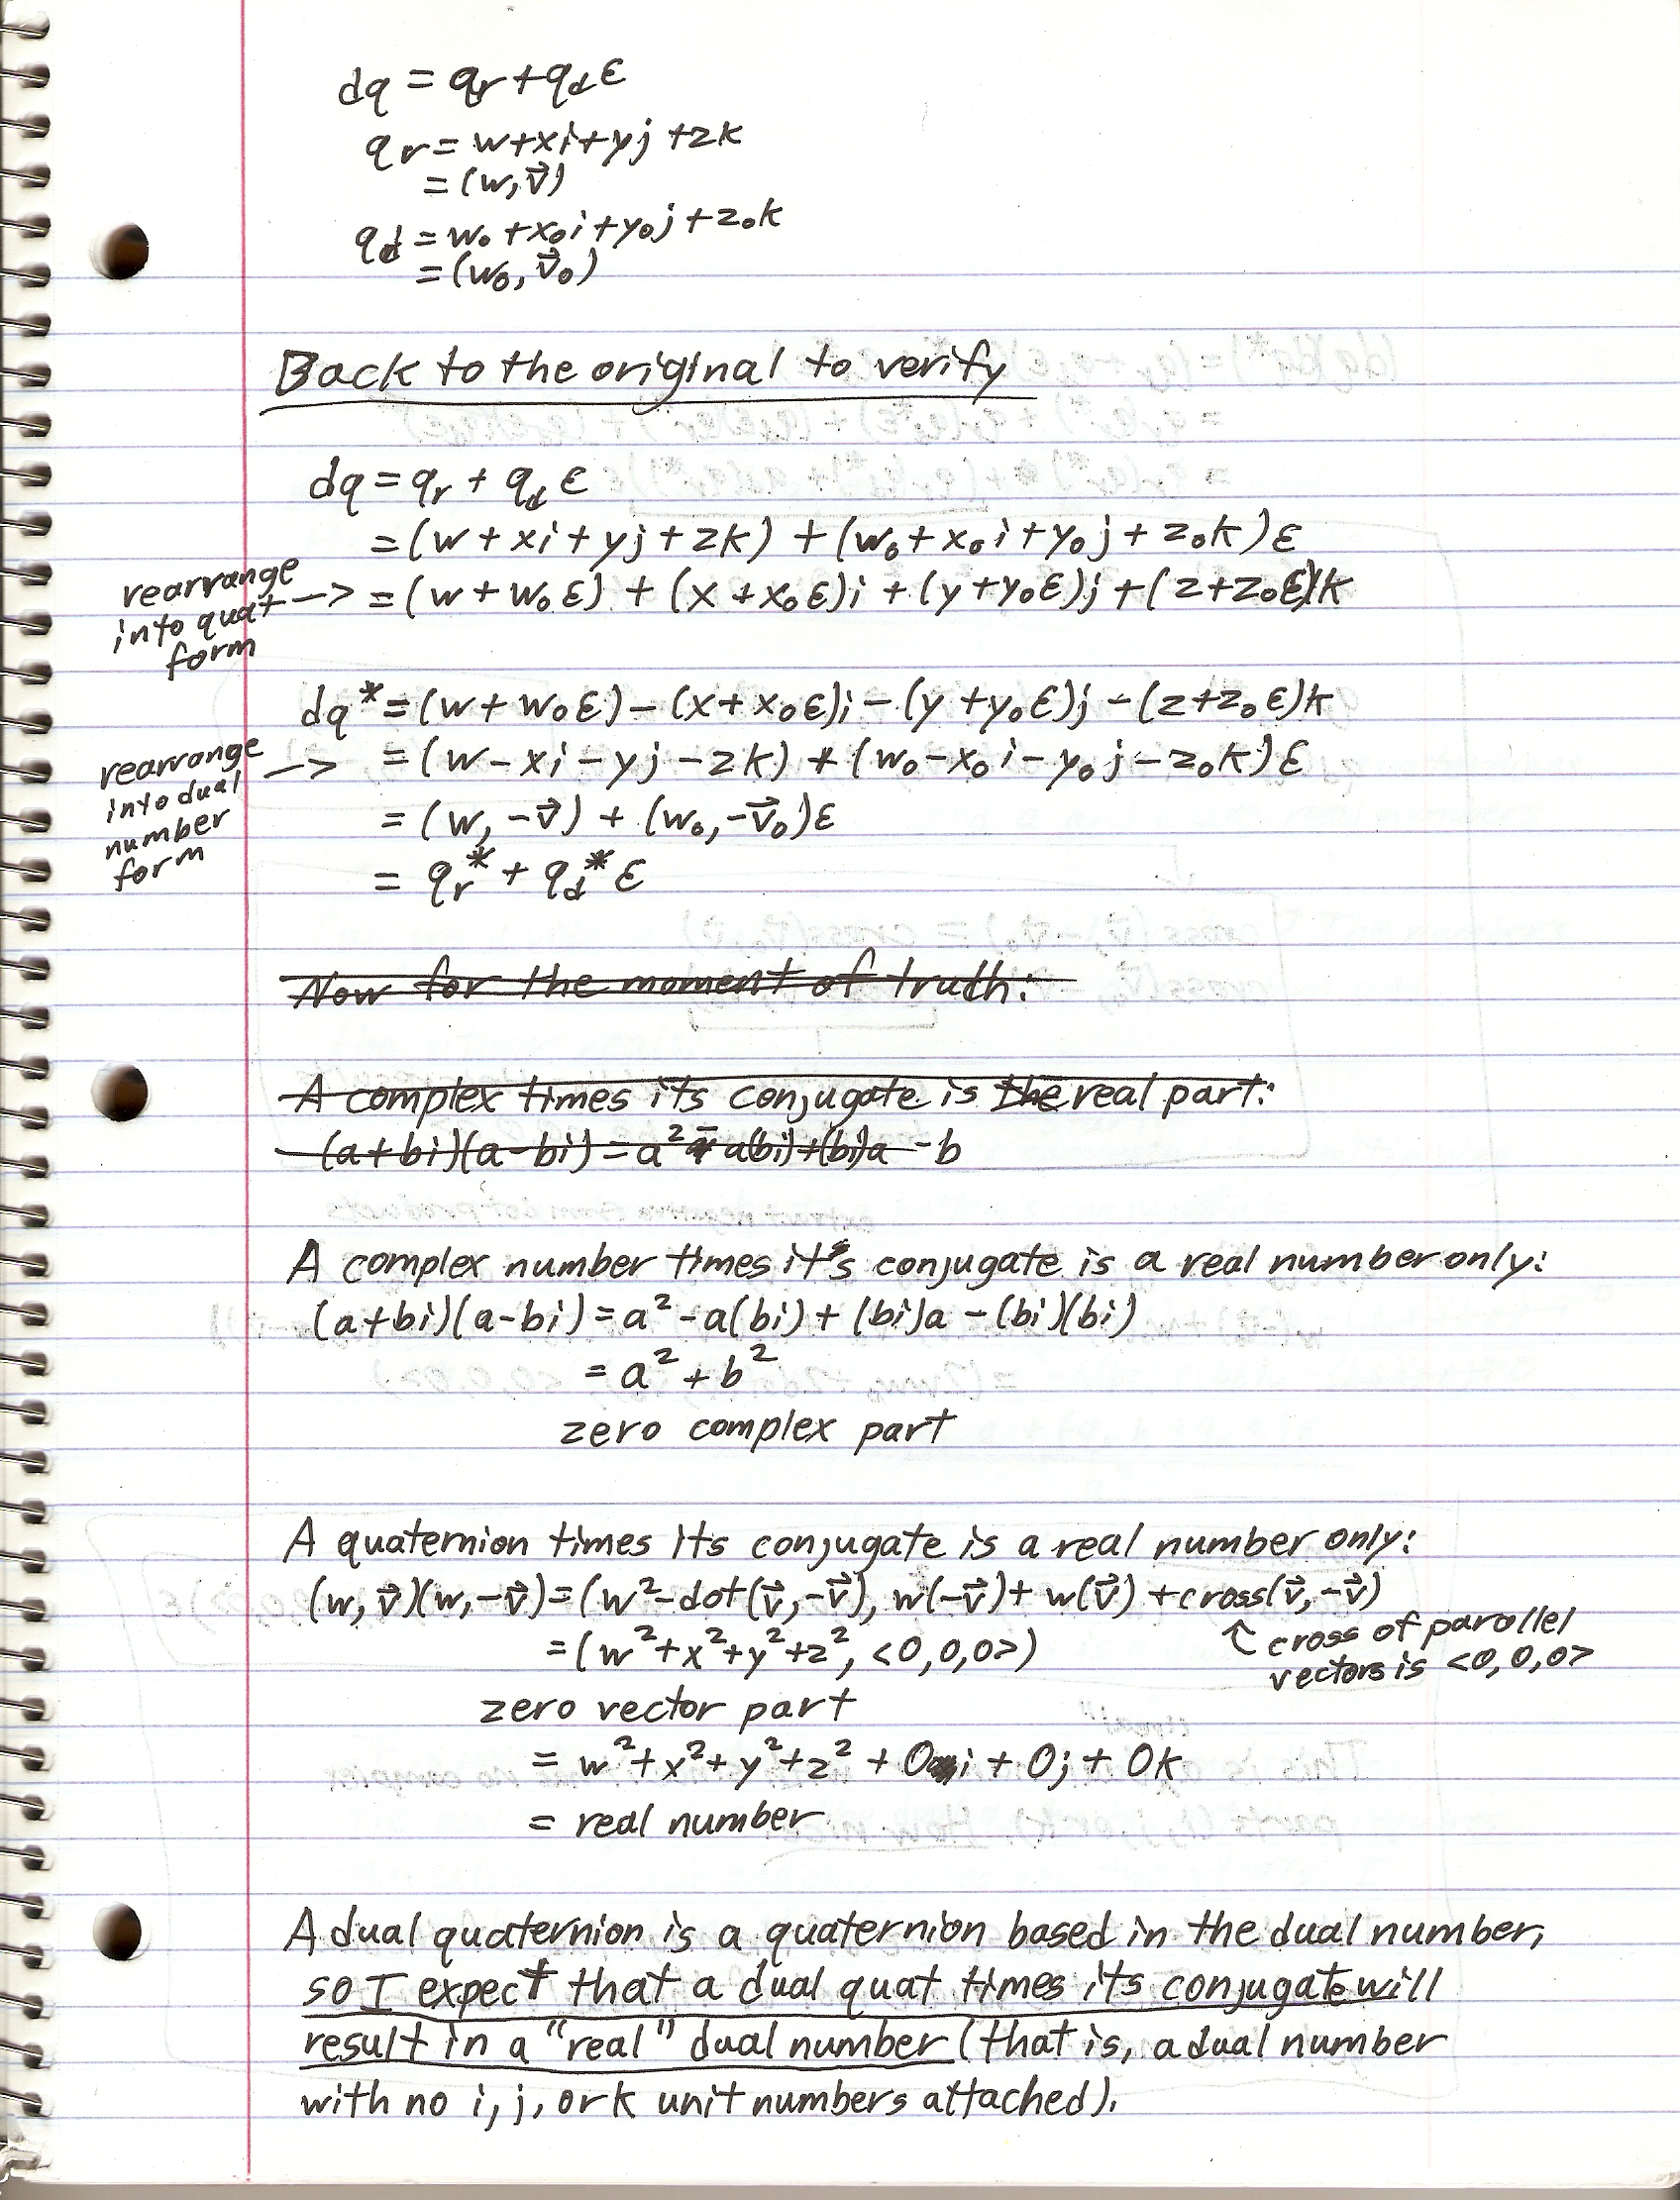 dq = qr + qdε
qr = w + xi + yj + zk
= (w, v⃗)
qd = w₀ + x₀i + y₀j + z₀k
= (w₀, v⃗₀)
Back to the original to verify
dq = qr + qd ε
= (w + xi + yj + zk) + (w₀ + x₀i + y₀j + z₀k)ε
rearrange into quat form -> = (w + w₀ε) + (x + x₀ε)i + (y + y₀ε)j + (z + z₀ε)k
dq* = (w + w₀ε) - (x + x₀ε)i - (y + y₀ε)j - (z + z₀ε)k
rearrange into dual number form -> = (w - xi - yj - zk) + (w₀ - x₀i - y₀j - z₀k)ε
= (w, -v⃗) + (w₀, -v⃗₀)ε
= qr* + qd* ε
Now for the moment of truth:
A complex times its conjugate is the real part:
(a+bi)(a-bi) = a² - a(bi) + (bi)a - b
A complex number times it's conjugate is a real number only:
(a+bi)(a-bi) = a² - a(bi) + (bi)a - (bi)(bi)
= a² + b²
zero complex part
A quaternion times its conjugate is a real number only:
(w, v⃗)(w, -v⃗) = (w² - dot(v⃗, -v⃗), w(-v⃗) + w(v⃗) + cross(v⃗, -v⃗)
↑ cross of parallel
= (w² + x² + y² + z², <0,0,0>)
vectors is <0,0,0>
zero vector part
= w² + x² + y² + z² + 0i + 0j + 0k
= real number
A dual quaternion is a quaternion based in the dual number,
so I expect that a dual quat times its conjugate will
result in a "real" dual number (that is, a dual number
with no i, j, or k unit numbers attached).